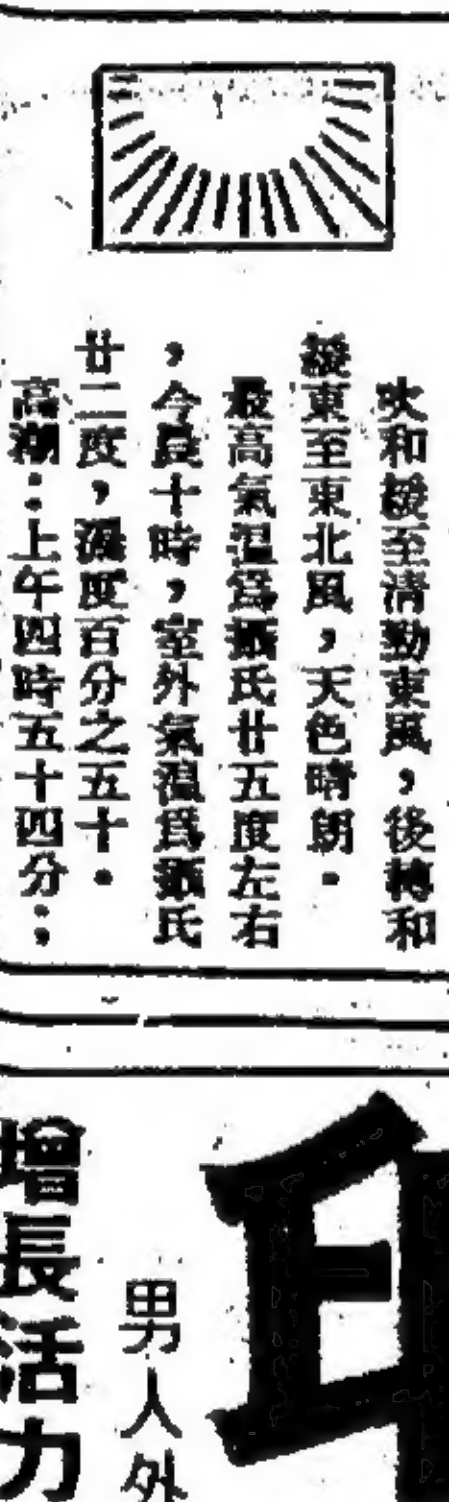 吹和緩至清勁東風，後轉和
緩東至東北風，天色晴朗。
最高氣溫爲攝氏廿五度左右
，今晨十時，室外氣溫爲攝氏
廿二度，濕度百分之五十。
高潮：上午四時五十四分；
男人外
增長活力